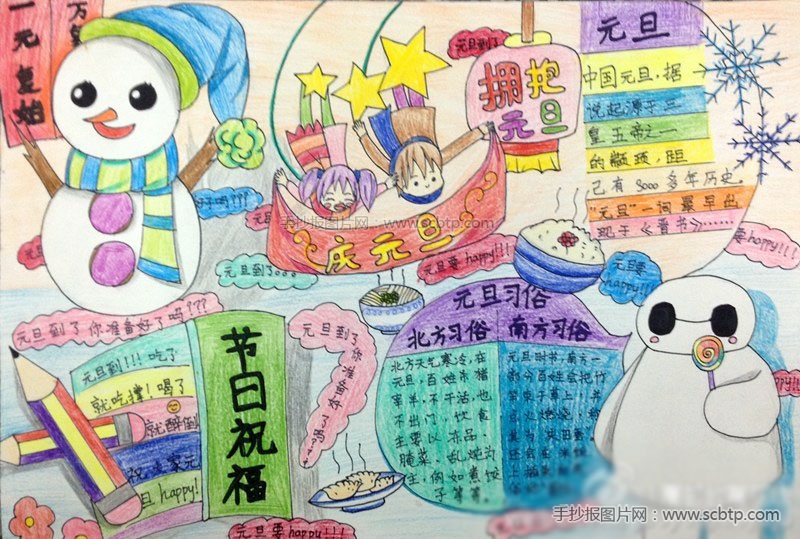 一元复始
万
元旦到了
拥抱
元旦
元旦
中国元旦,据
说起源于三
皇五帝之一
的颛顼,距
己有3000多年历史。
"元旦"一词最早出
现于《晋书》……
手抄报图片网:www.scbtp.com
庆元旦
元旦到了。。。
元旦要happy!!!
元旦要
happy!!!
要happy!!!
元旦到了你准备好了吗???
元旦到!!!吃了
就吃撑!喝了
就醉倒
祝大家元
旦happy!
节日祝福
元旦到了你准备好了吗??
元旦习俗
北方习俗
南方习俗
北方天气寒冷,在
元旦,百姓杀猪
宰羊,不干活,也
不出门,饮食
主要以冻品、
腌菜、乱炖为
主,例如煮饺
子等等。
元旦时节,南方一
部分百姓会把竹
元旦要happy!!!
手抄报图片网:www.scbtp.com